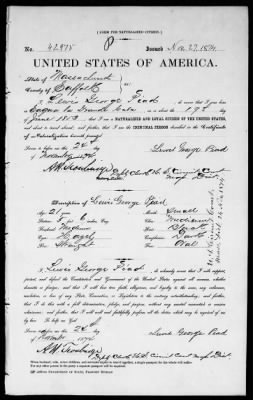 [FORM FOR NATURALIZED CITIZEN.]
No. 42878 Issued Nov 27, 1874
UNITED STATES OF AMERICA.
State of Massachusetts
County of Suffolk
I, Lewis George Pead, do swear that I was born
Sagua la Grande Cuba on or about the day of
June 1853; that I am a NATURALIZED AND LOYAL CITIZEN OF THE UNITED STATES,
and about to travel abroad; and further, that I am the IDENTICAL PERSON described in the Certificate
of Naturalization herewith presented.
Sworn to before me this 24th Lewis George Pead
day of November 1874
Description of Lewis George Pead
Age: 21 years Mouth: Small
Stature: 5 feet 6 Chin: Medium
Forehead: Medium Hair: Black
Eyes: Hazel Complexion: Dark
Nose: Straight Face: Oval
I, Lewis George Pead, do solemnly swear that I will support,
protect, and defend the Constitution and Government of the United States against all enemies, whether
domestic or foreign; and that I will bear true faith, allegiance, and loyalty to the same, any ordinance,
resolution, or law of any State, Convention, or Legislature to the contrary notwithstanding; and further,
that I do this with a full determination, pledge, and purpose, without any mental reservation or evasion
whatsoever; and further, that I will well and faithfully perform all the duties which may be required of me
by law: So help me God.
Sworn to before me this 24th Lewis George Pead
day of November 1874